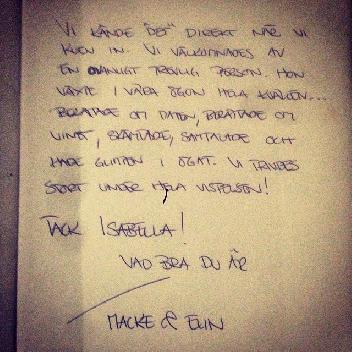 VI KÄNDE "DET" DIREKT NÄR VI
KLEV IN. VI VÄLKOMNADES AV
EN OVANLIGT TREVLIG PERSON. HON
VÄXTE I VÅRA ÖGON HELA KVÄLLEN...
BERÄTTADE OM MATEN, BERÄTTADE OM
VINET, SKÄMTADE, SAMTALADE OCH
HADE GLIMTEN I ÖGAT. VI TRIVDES
STORT UNDER HELA VISTELSEN!
TACK ISABELLA!
VAD BRA DU ÄR
MACKE & ELIN